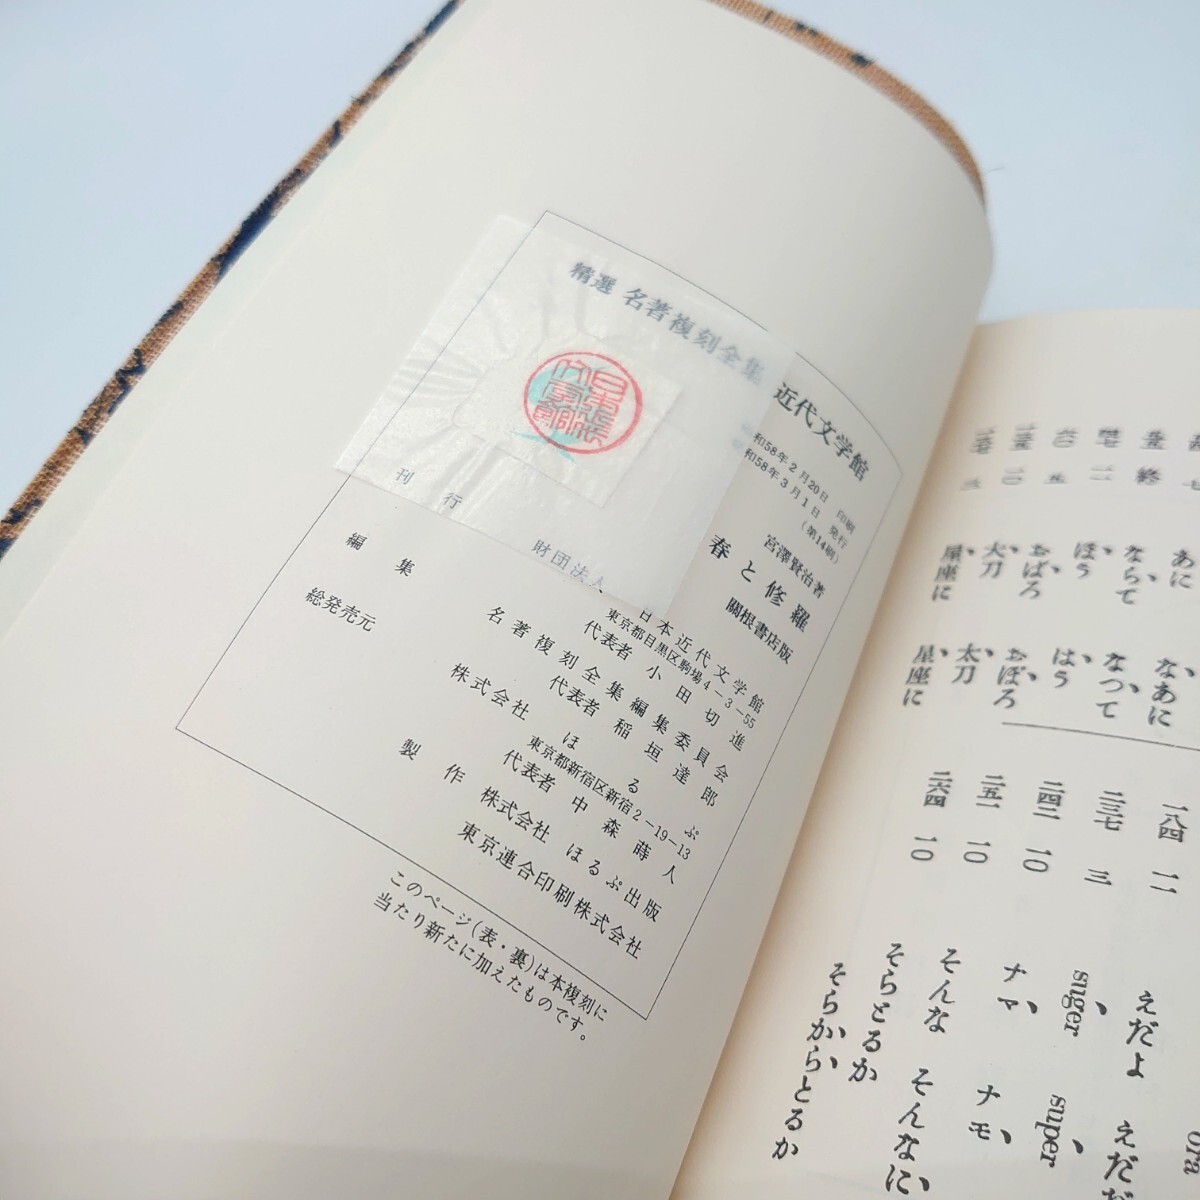 精選 名著複刻全集 近代文学館
和58年2月20日 印刷
和58年3月1日 発行
(第14刷)
宮澤賢治著
春と修羅
關根書店版
刊行 財団法人 日本近代文学館
東京都目黒区駒場4-3-55
代表者 小田切進
編集 名著複刻全集編集委員会
代表者 稲垣達郎
総発売元 株式会社 ほるぷ
東京都新宿区新宿2-19-13
代表者 中森蒔人
製作 株式会社 ほるぷ出版
東京連合印刷株式会社
このページ(表・裏)は本複刻に
当たり新たに加えたものです。
一八四 一一 えだよ えだだ
あに なあに
二三七 三 suger super
ならて なつて
二四二 一〇 ナマ ナモ
ほう はう
二五一 一〇 そんな そんなに
おばろ おぼろ
二六四 一〇 そらとるか そらからとるか
大刀 太刀
星座に 星座に